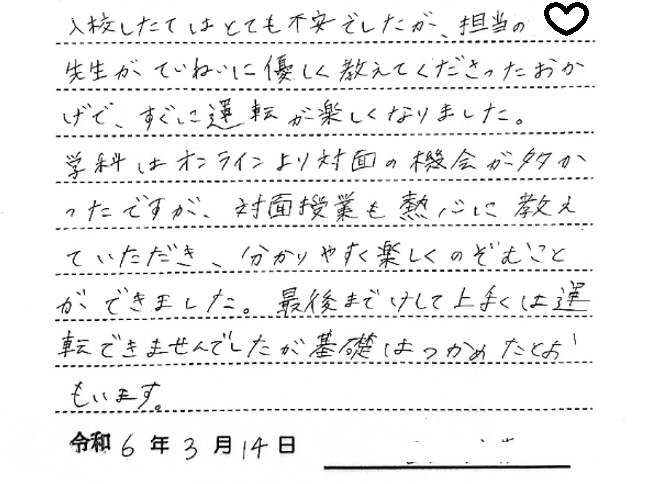 入校したてはとても不安でしたが、担当の
先生がていねいに優しく教えてくださったおか
げで、すぐに運転が楽しくなりました。
学科はオンラインより対面の機会が多か
ったですが、対面授業も熱心に教え
ていただき、分かりやすく楽しくのぞむこと
ができました。最後までけして上手くは運
転できませんでしたが基礎はつかめたとお
もいます。
令和6年3月14日